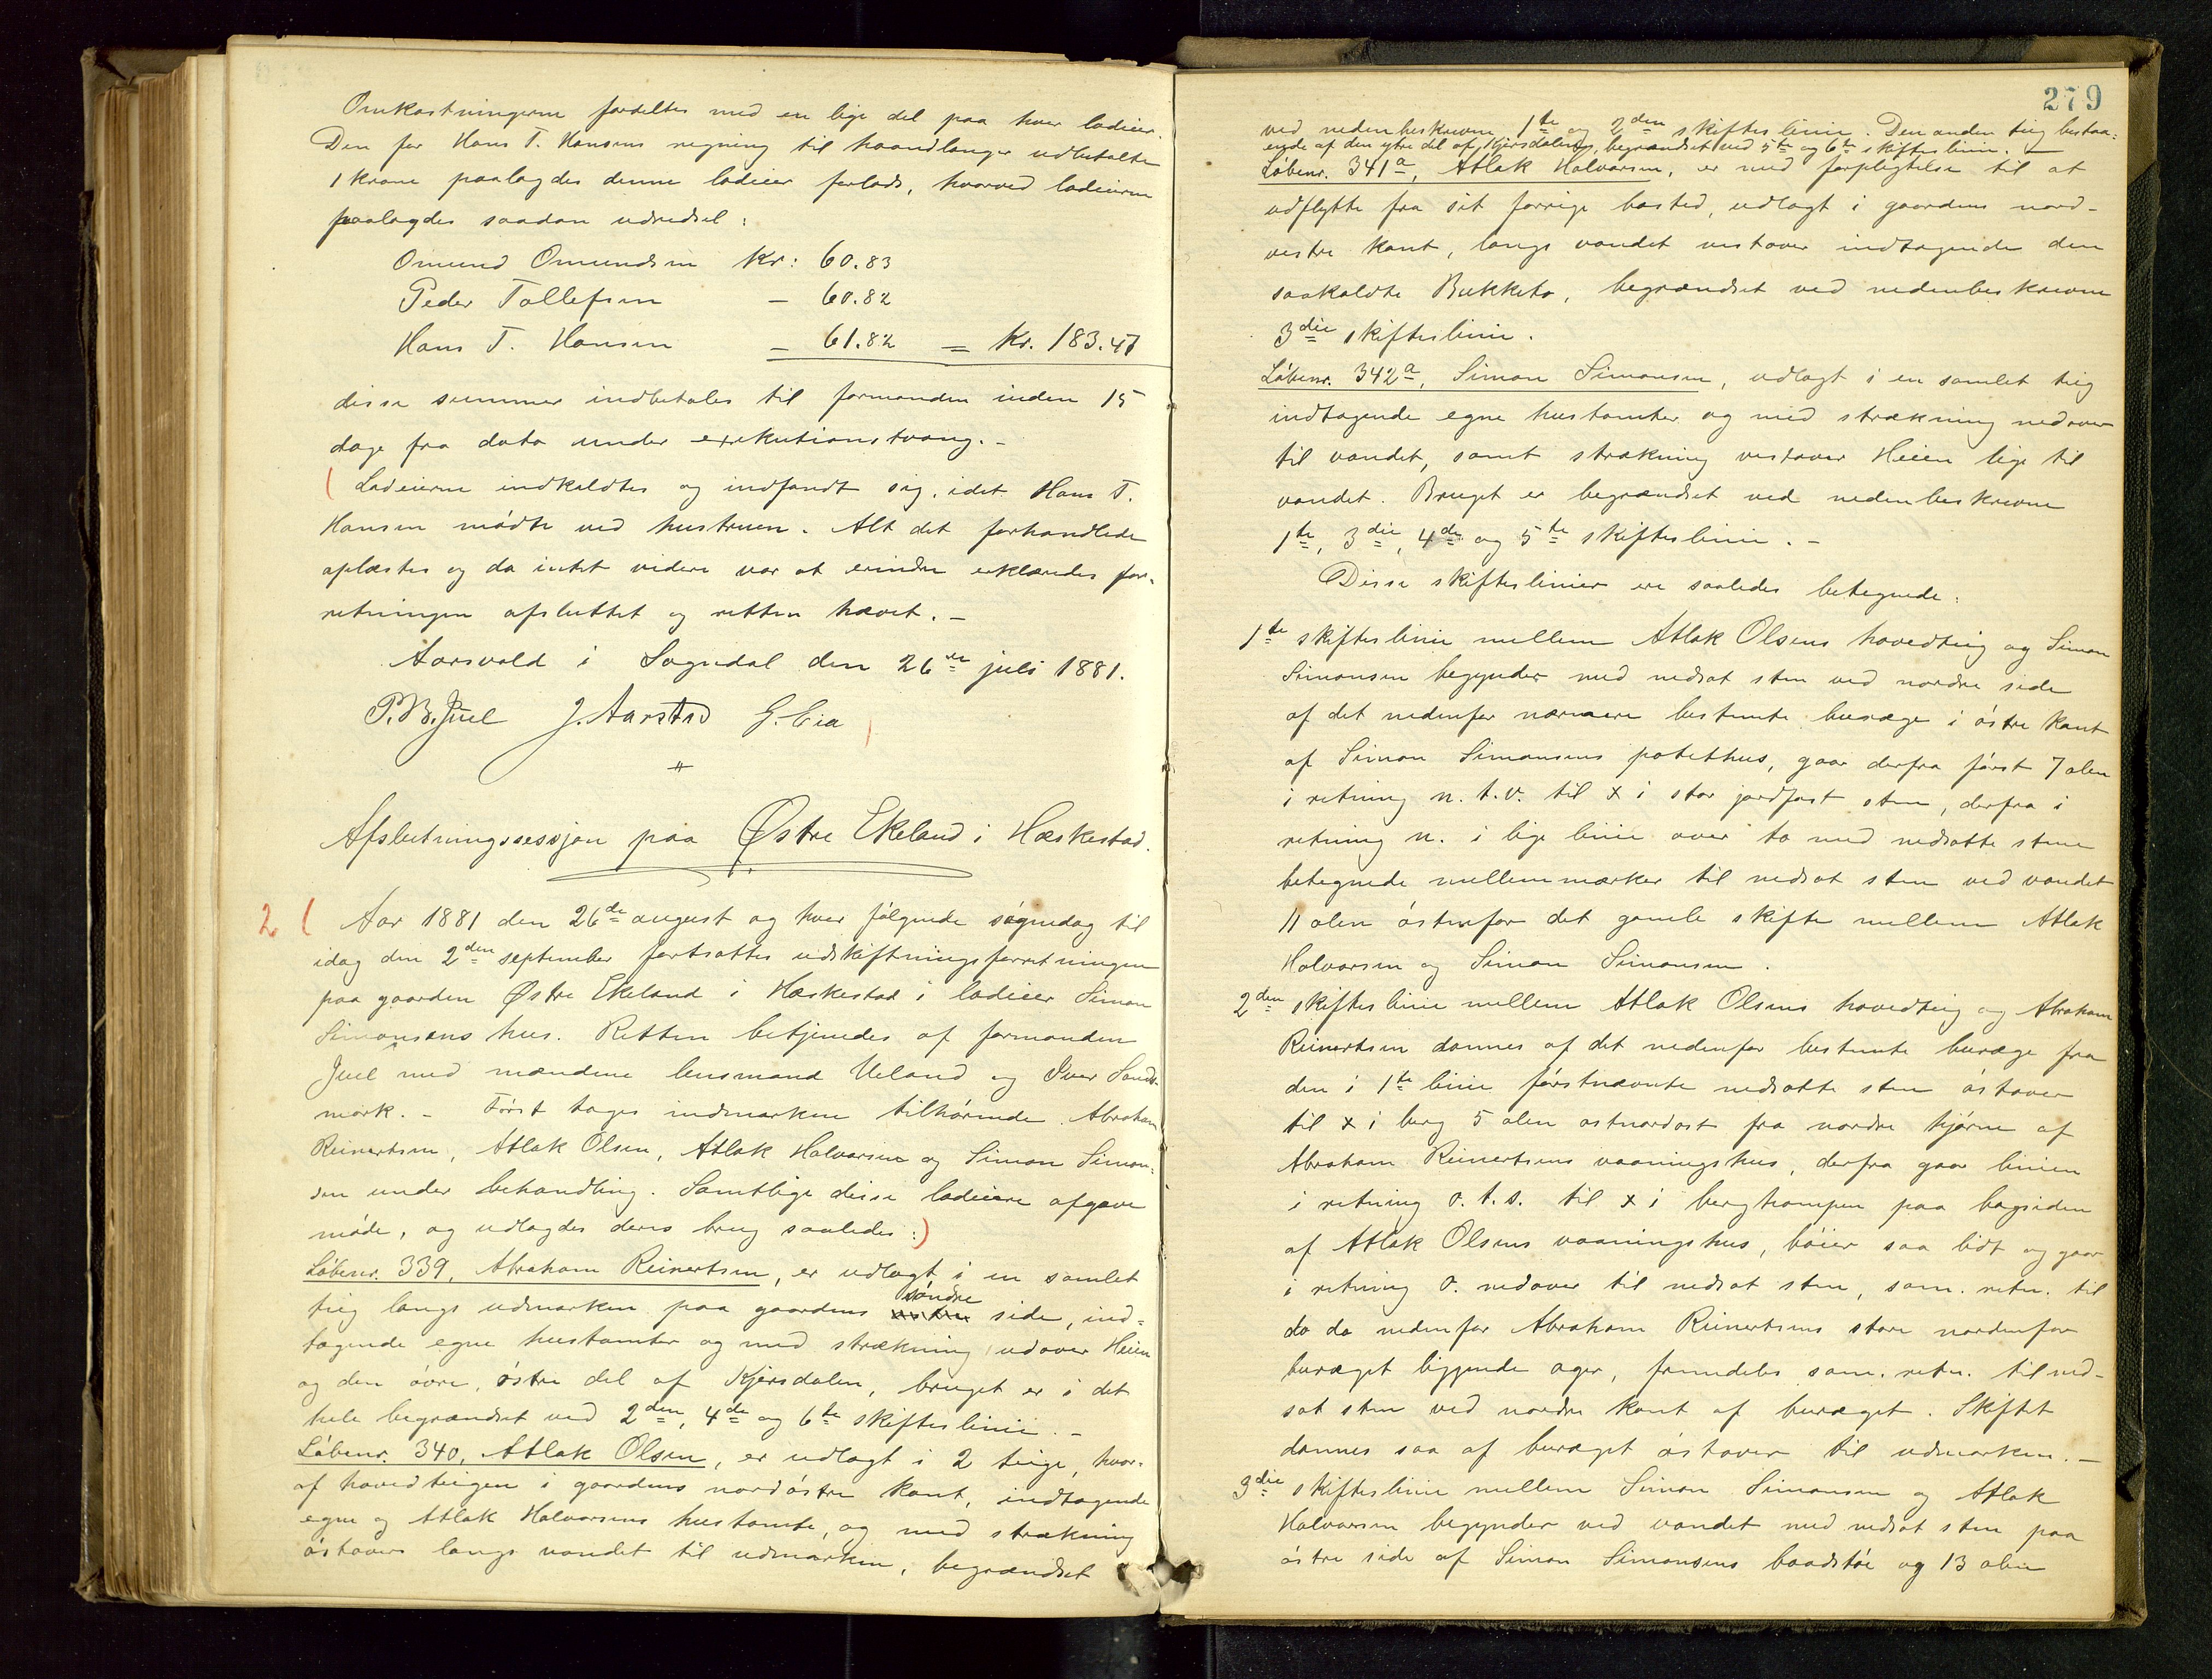 Omkostningerne fordeltes med en lige del paa hver lodeier.
Den for Hans T. Hansens regning til haandlanger udbetalte
1 krone paalagdes denne lodeier forlods, hvorved lodeierne
paalagdes saadan udredsel:
Omund Omundsen Kr: 60.83
Peder Tollefsen – 60.82
Hans T. Hansen – 61.82 = Kr. 183.47
disse summer indbetales til formanden inden 15
dage fra dato under exekutionstvang. –
Lodeierne indkaldtes og indfandt sig, idet Hans T.
Hansen mødte ved hustruen. Alt det forhandlede
oplæstes og da intet videre var at erindre erklæredes for-
retningen afsluttet og retten hævet. –
Aarsvold i Sogndal den 26de juli 1881.
P.B. Juel J. Aarstad G. Eia
Afslutningssessjon paa Østre Ekeland i Hæskestad.
2 ( Aar 1881 den 26de august og hver følgende søgnedag til
idag den 2den september fortsattes udskiftningsforretningen
paa gaarden Østre Ekeland i Hæskestad i lodeier Simon
Simonsens hus. Retten betjenedes af formanden
Juel med mændene lensmand Ueland og Iver Sands-
mark. – Først toges indmarken tilhørende Abraham
Reinertsen, Atlak Olsen, Atlak Halvorsen og Simon Simon-
sen under behandling. Samtlige disse lodeiere afgave
møde, og udlagdes deres brug saaledes:)
Løbenr. 339, Abraham Reinertsen, er udlagt i en samlet
teig langs udmarken paa gaardens søndre side, ind-
tagende egne hustomter og med strækning udover Heien
og den øvre, østre del af Kjersdalen, bruget er i det
hele begrændset ved 2den, 4de og 6te skifteslinie. –
Løbenr. 340, Atlak Olsen, er udlagt i 2 teige, hvor-
af hovedteigen i gaardens nordøstre kant, indtagende
egne og Atlak Halvorsens hustomte, og med strækning
østover langs vandet til udmarken, begrændset
279
ved nedenbeskrevne 1te og 2den skifteslinie. Den anden teig bestaa-
ende af den ytre del af Kjersdalen, begrændset ved 5te og 6te skifteslinie. –
Løbenr. 341a, Atlak Halvorsen, er med forpligtelse til at
udflytte fra sit forrige bosted, udlagt i gaardens nord-
vestre kant, langs vandet vestover indtagende den
saakaldte Bukketo, begrændset ved nedenbeskrevne
3die skifteslinie.
Løbenr. 342a, Simon Simonsen, udlagt i en samlet teig
indtagende egne hustomter og med strækning nedover
til vandet, samt strækning vestover Heien lige til
vandet. Bruget er begrændset ved nedenbeskrevne
1te, 3die, 4de og 5te skifteslinie. –
Disse skifteslinier ere saaledes betegnede:
1te skifteslinie mellem Atlak Olsens hovedteig og Simon
Simonsen begynder med nedsat sten ved nordre side
af det nedenfor nærmere bestemte buræge i østre kant
af Simon Simonsens potethus, gaar derfra først 7 alen
i retning n. t. v. til x i stor jordfast sten, derfra i
retning n. i lige linie over to med nedsatte stene
betegnede mellemmærker til nedsat sten ved vandet
11 alen østenfor det gamle skifte mellem Atlak
Halvorsen og Simon Simonsen.
2den skifteslinie mellem Atlak Olsens hovedteig og Abraham
Reinertsen dannes af det nedenfor bestemte buræge fra
den i 1te linie førstnævnte nedsatte sten østover
til x i berg 5 alen ostnordost fra nordre hjørne af
Abraham Reinertsens vaaningshus, derfra gaar linien
i retning o. t. s. til x i berghampen paa bagsiden
af Atlak Olsens vaaningshus, bøier saa lidt og gaar
i retning o. nedover til nedsat sten, sam. retn. til
do do nedenfor Abraham Reinertsens store nordenfor
buræget liggende ager, fremdeles sam. retn. til ned-
sat sten ved nordre kant af buræget. Skiftet
dannes saa af buræget østover til udmarken. –
3die skifteslinie mellem Simon Simonsen og Atlak
Halvorsen begynder ved vandet med nedsat sten paa
østre side af Simon Simonsens baadstøe og 13 alen